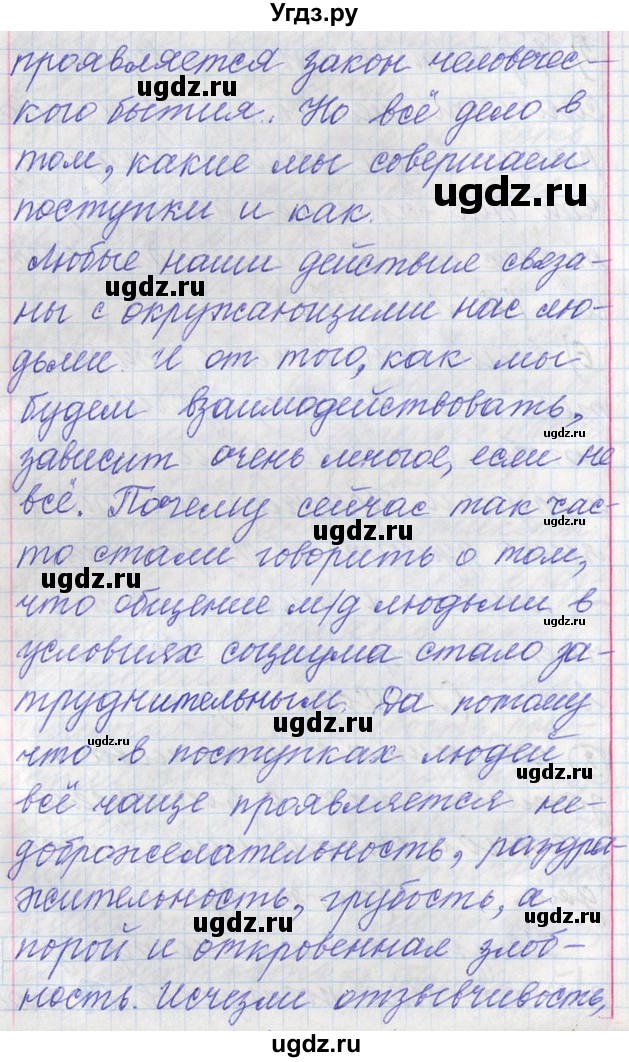 Угдз.ру
проявляется закон человечес-
кого бытия. Но всё дело в
том, какие мы совершаем
ugdz.ru
ugdz.ru
поступки и как.
Любые наши действия связа-
ugdz.ru
ugdz.ru
ны с окружающими нас лю-
дьми. И от того, как мы
будем взаимодействовать,
ugdz.ru
ugdz.ru
зависит очень многое, если не
всё. Почему сейчас так час-
ugdz.ru
ugdz.ru
то стали говорить о том,
ugdz.ru
что общение м/д людьми в
условиях социума стало за-
ugdz.ru
труднительным. Да потому
ugdz.ru
ugdz.ru
что в поступках людей
ugdz.ru
всё чаще проявляется не-
доброжелательность, раздра-
ugdz.ru
жительность, грубость, а
ugdz.ru
ugdz.ru
порой и откровенная злоб-
ность. Исчезли отзывчивость,
ugdz.ru
ugdz.ru